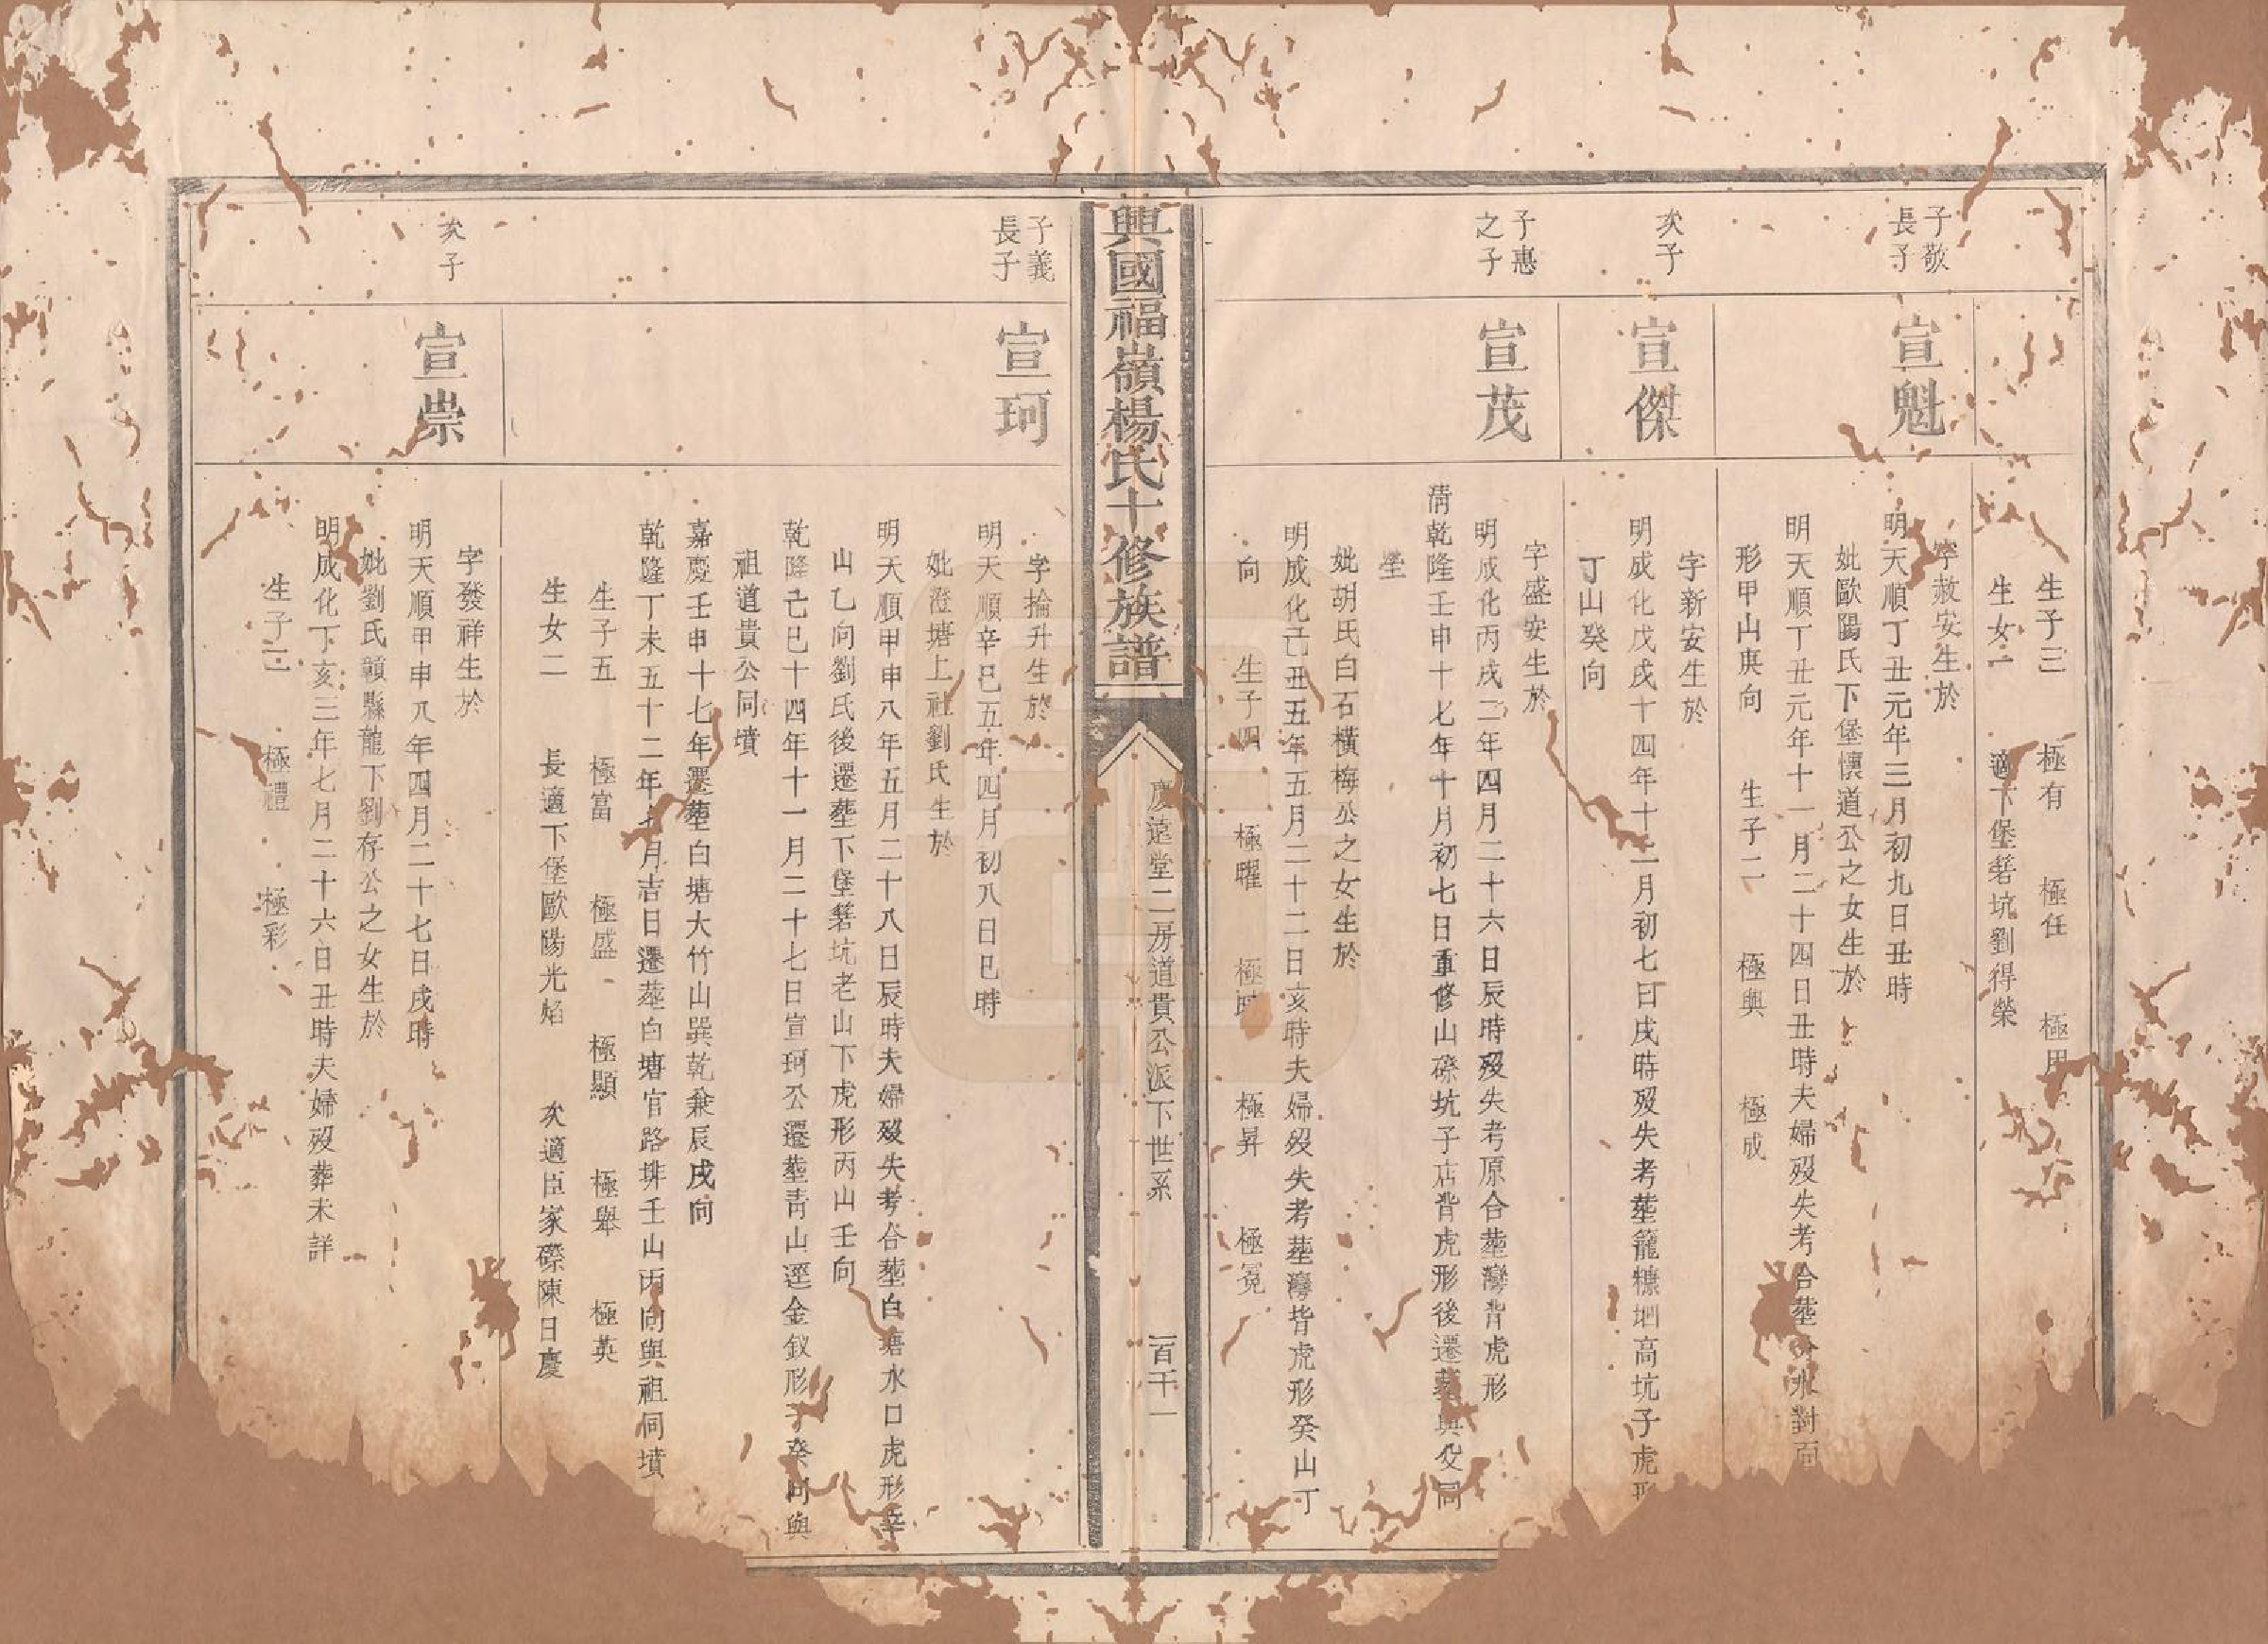 生子三 極有 極任 極用
生女一 適下堡箬坑劉得榮
子敬
長子
宣魁
字赦安生於
明天順丁丑元年三月初九日丑時
妣歐陽氏下堡懷道公之女生於
明天順丁丑元年十一月二十四日丑時夫婦歿失考合塟 水對面
形甲山庚向 生子二 極興 極成
次子
宣傑
字新安生於
明成化戊戌十四年十二月初七日戌時歿失考塟籠糠垇高坑子虎形
丁山癸向
子惠
之子
宣茂
字盛安生於
明成化丙戌二年四月二十六日辰時歿失考原合塟灣背虎形
清乾隆壬申十七年十月初七日重修山磜坑子店背虎形後遷塟與父同
塋
妣胡氏白石橫梅公之女生於
明成化己丑五年五月二十二日亥時夫婦歿失考塟灣背虎形癸山丁
向 生子四 極曜 極 極昇 極冕
興國福嶺楊氏十修族譜
慶遠堂二房道貴公派下世系 一百千一
子義
長子
宣珂
字掄升生於
明天順辛巳五年四月初八日巳時
妣澄塘上社劉氏生於
明天順甲申八年五月二十八日辰時夫婦歿失考合塟白塘水口虎形辛
山乙向劉氏後遷塟下堡箬坑老山下虎形丙山壬向
乾隆己巳十四年十一月二十七日宣珂公遷塟青山逕金釵形子癸向與
祖道貴公同墳
嘉慶壬申十七年遷塟白塘大竹山巽乾兼辰戌向
乾隆丁未五十二年七月吉日遷塟白塘官路排壬山丙向與祖伺墳
生子五 極富 極盛 極顯 極舉 極英
生女二 長適下堡歐陽光焰 次適臣家磜陳日慶
次子
宣崇
字發祥生於
明天順甲申八年四月二十七日戌時
妣劉氏贛縣龍下劉存公之女生於
明成化丁亥三年七月二十六日丑時夫婦歿葬未詳
生子二 極禮 極彩